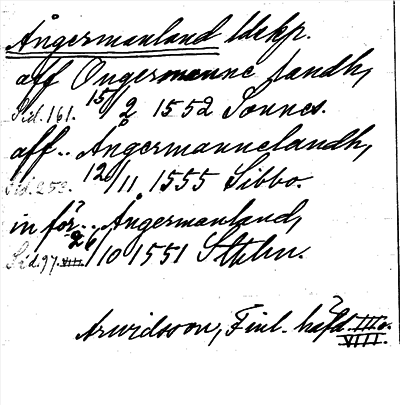 Ångermanland ldskp.
aff Ongermanne landh,
Sid. 161. 15/2 1552 Tonnes.
aff.. Ångermannelandh,
Sid. 252. 12/11 1555 Sibbo.
in för.. Ångermanland,
Sid. 97. VIII. 26/10 1551 Sthlm.
Arwidsson, Finl. häfd. III o.
VIII.